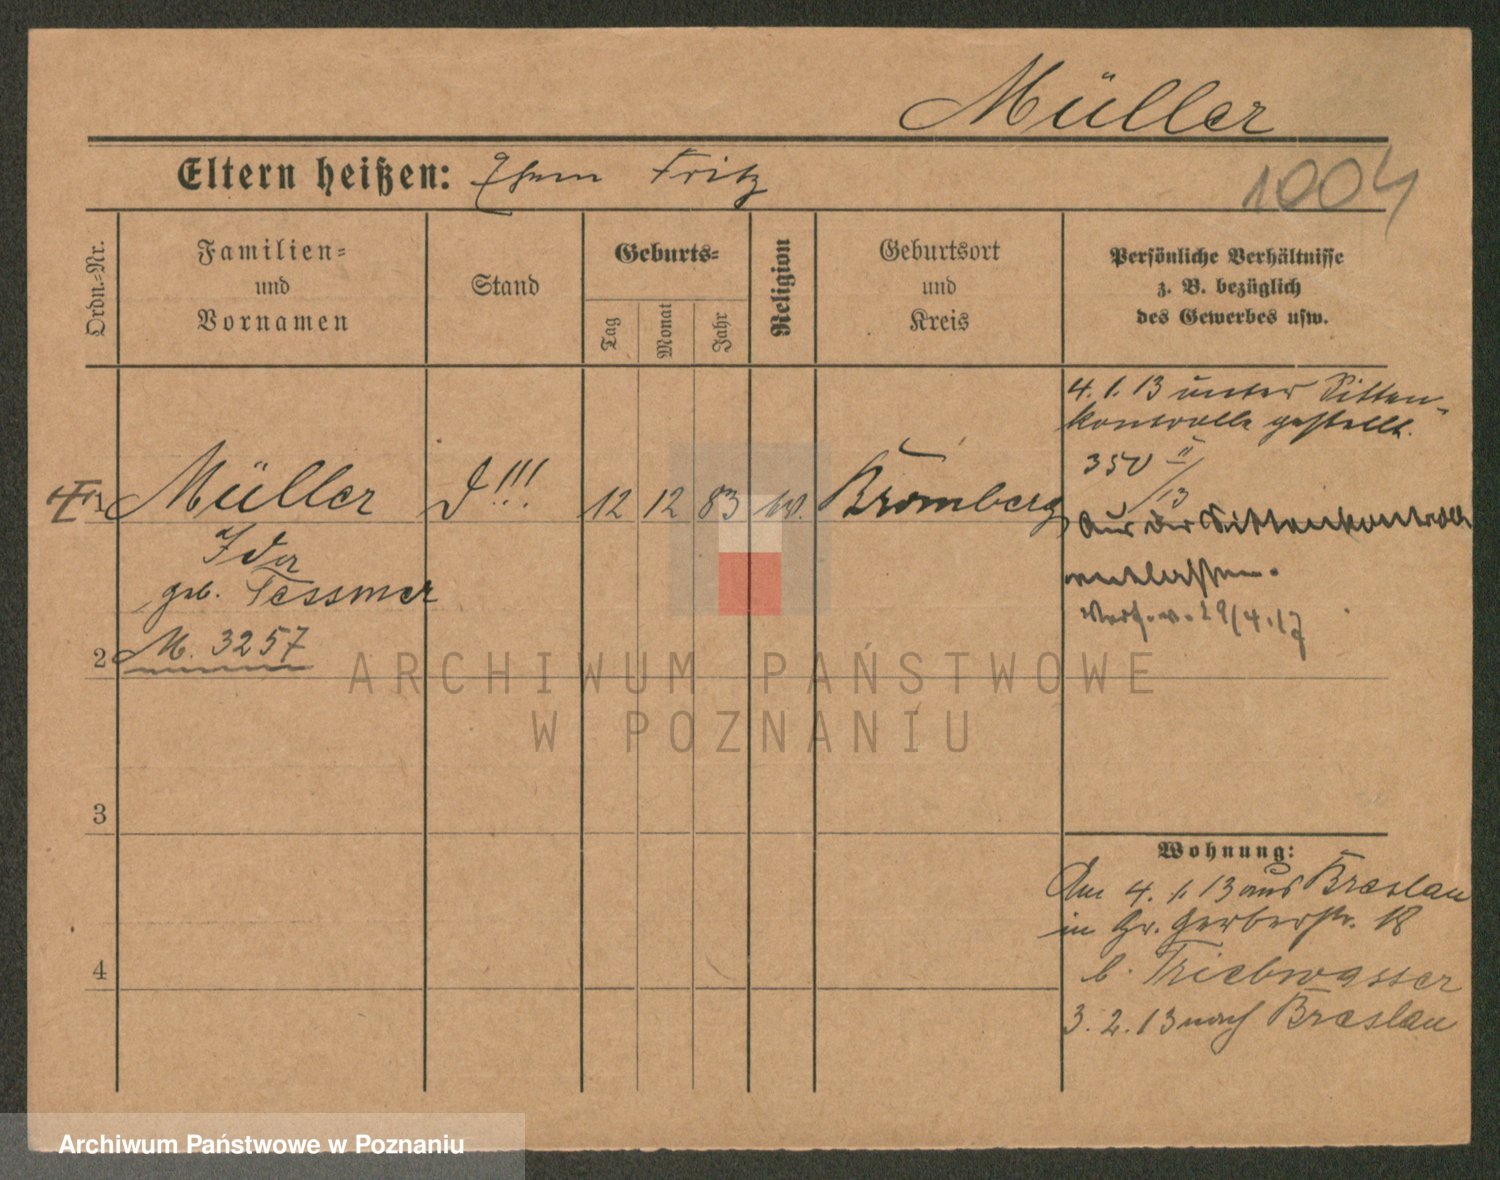 Müller
Eltern heißen: Ehem Fritz
1004
Ordn.-Nr.
Familien-
und
Vornamen
Stand
Geburts-
Tag
Monat
Jahr
Religion
Geburtsort
und
Kreis
Persönliche Verhältnisse
z. B. bezüglich
des Gewerbes usw.
Müller
D!!!
12
12
83
Bromberg
Ida
geb. Tessmer
M. 3257
4. 1. 13 unter Sitten-
kontrolle gestellt.
350 II/13
Aus der Sittenkontrolle
entlassen.
Verf. v. 29/4.17
2
3
4
Wohnung:
Am 4. 1. 13 aus Breslau
in Gr. Gerberstr. 18
b. Triebwasser
3. 2. 13 nach Breslau
ARCHIWUM PAŃSTWOWE
W POZNANIU
Archiwum Państwowe w Poznaniu